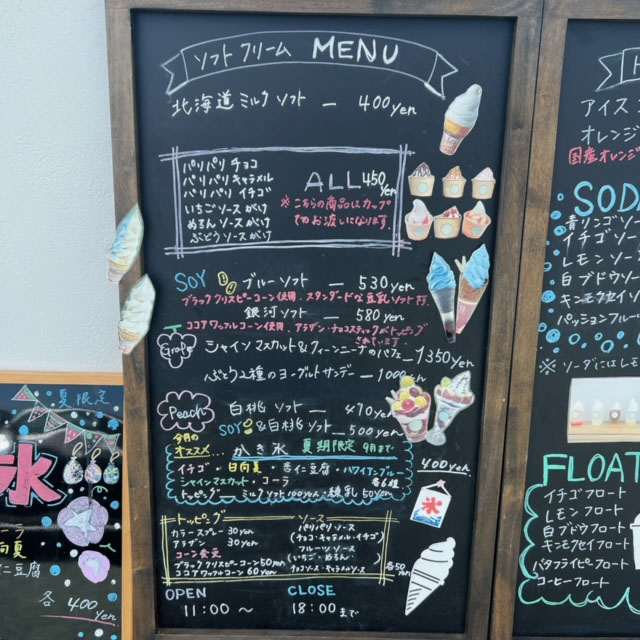 ソフトクリーム MENU
北海道ミルクソフト ー 400yen
パリパリ チョコ
パリパリ キャラメル
パリパリ イチゴ
いちごソースがけ
めろんソースがけ
ぶどうソースがけ
ALL 450yen
※こちらの商品はカップ
でのお渡しになります。
SOY ブルーソフト ー 530yen
ブラッククリスピーコーン使用、スタンダードな豆乳ソフト
銀河ソフト ー 580yen
ココアワッフルコーン使用、アラザン・チョコスティックがトッピング
されています
Grape シャインマスカット&クイーンニーナのパフェ ー 1350yen
ぶどう2種のヨーグルトサンデー ー 1000yen
Peach 白桃ソフト ー 470yen
SOY &白桃ソフト ー 500yen
今月の
オススメ... かき氷 夏期限定 9月まで
400yen
イチゴ・日向夏・杏仁豆腐・ハワイアンブルー
シャインマスカット・コーラ 各6種
トッピング ー ミルクソフト100yen・練乳50yen
氷
トッピング
カラースプレー 30yen
アラザン 30yen
コーン変更
ブラッククリスピーコーン 50yen
ココアワッフルコーン 60yen
ソース
パリパリソース
(チョコ・キャラメル・イチゴ)
フルーツソース
(いちご・めろん・
チョコソース・キャラメルソース
各50yen
OPEN CLOSE
11:00〜 18:00まで
夏限定
氷
ラ
向夏
仁豆腐
各 400yen
アイス
オレンジ
国産オレンジ
SODA
青リンゴソー
イチゴソー
レモンソー
白ブドウソー
キンモクセイソ
パッションフルー
※ソーダにはレモ
FLOAT
イチゴフロート
レモンフロート
白ブドウフロート
キンモクセイフロート
バタフライピーフロート
コーヒーフロート